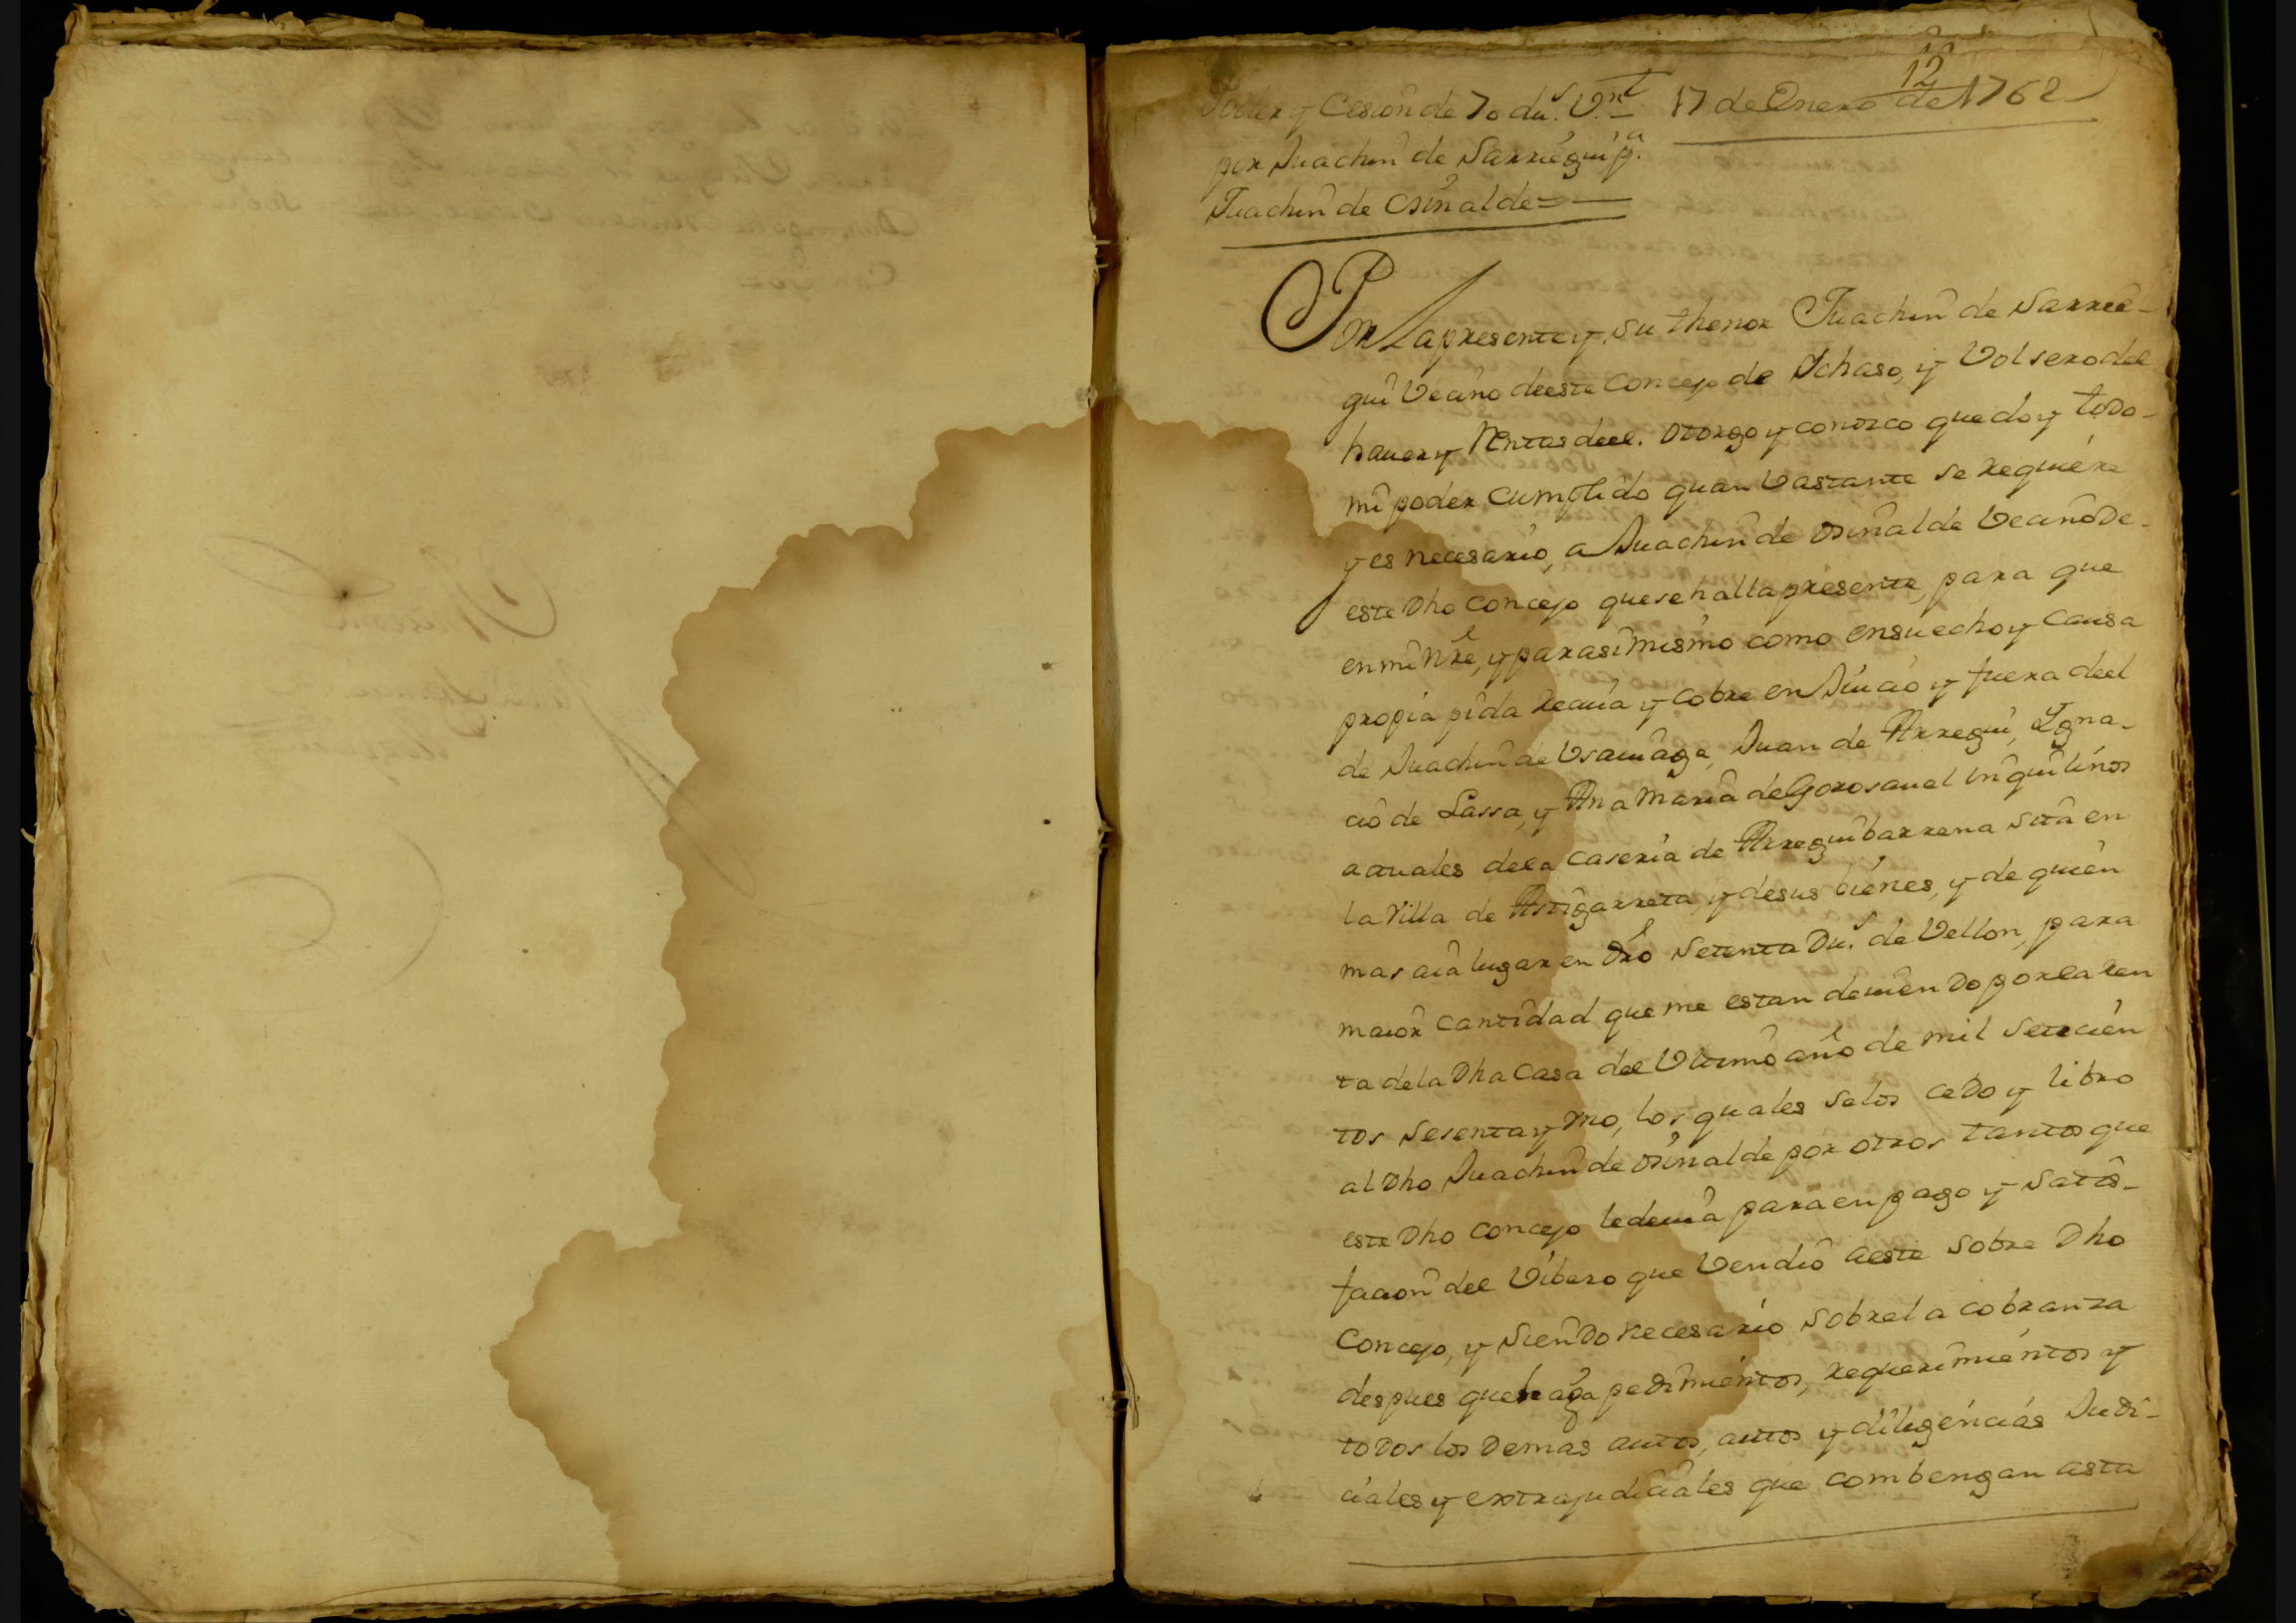 12
Poder y Cesion de 70 du.s V.n 17 de Enero de 1762
por Juachin de Sarriegui p.a
Juachin de Osinalde = —
Por la presente y su thenor Juachin de Sarrie-
gui Vecino de este Concejo de Ichaso, y Volsero del
haver y Rentas de el. Otorgo y conozco que doy todo-
mi poder cumplido quan bastante se requiere
y es necesario, a Juachin de Osinalde Vecino de-
este dho Concejo que se halla presente, para que
en mi nre, y para si mismo como en su echo y causa
propia pida reciva y cobre en Juicio y fuera de el
de Juachin de Usaviaga, Juan de Arregui, Igna-
cio de Lassa, y Ana Maria de Gorosavel inquilinos
actuales de la caseria de Arreguibarrena sita en
la Villa de Astigarreta, y de sus bienes, y de quien
mas aia lugar en dro setenta du.s de Vellon, para
maior cantidad que me estan deviendo por la ren
ta de la dha casa del Ultimo año de mil setecien
tos sesenta y uno, los quales se los cedo y libro
al dho Juachin de Osinalde por otros tantos que
este dho concejo le devia para en pago y satis-
facion del Vibero que Vendio a este sobre dho
Concejo, y siendo necesario sobre la cobranza
despues que haga pedimientos, requerimientos y
todos los demas autos, actos y diligencias Judi-
ciales y extrajudiciales que combengan asta